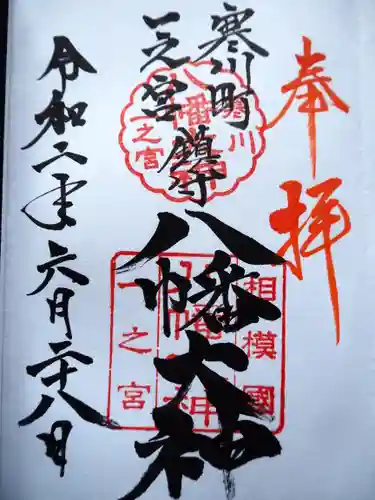 奉拝
寒川町
一之宮 鎮守
八幡大神
令和二年六月二十八日
寒川
一之宮
相模國
一之宮